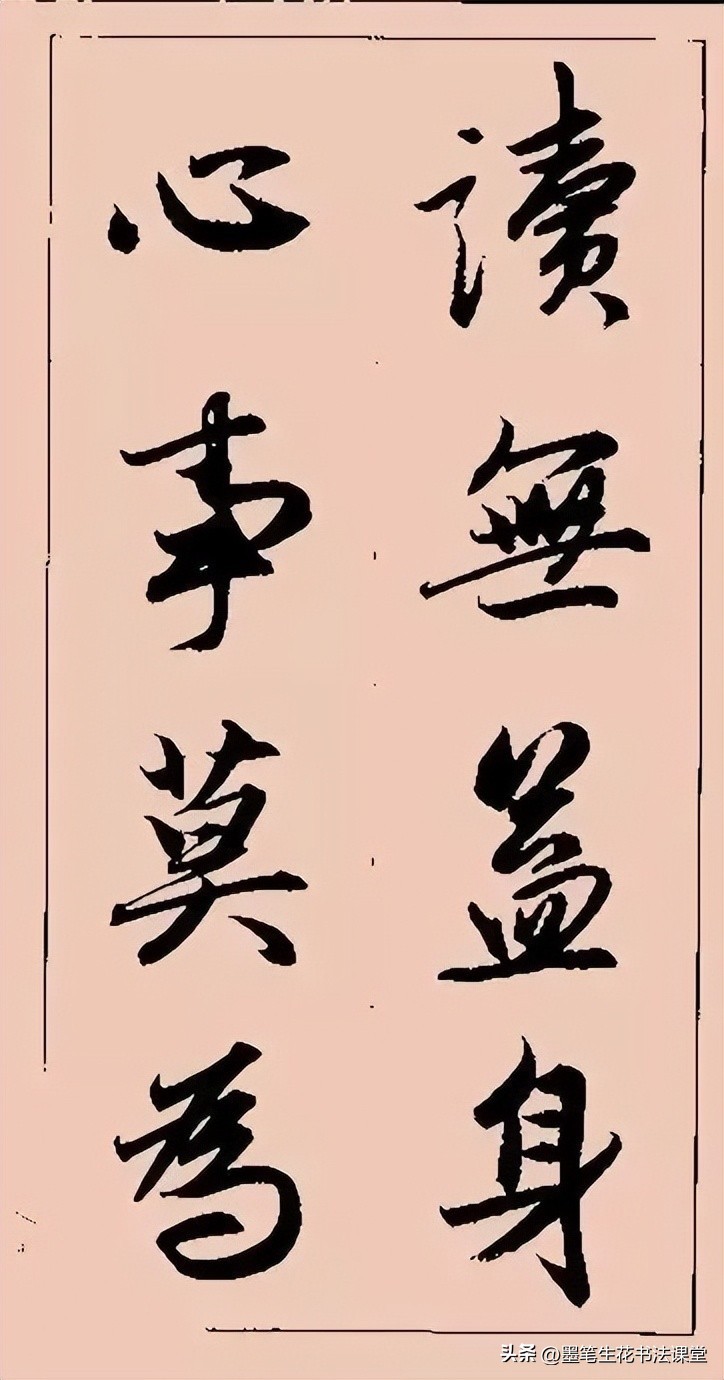 讀無益身
心事莫為
头条 @墨笔生花书法课堂